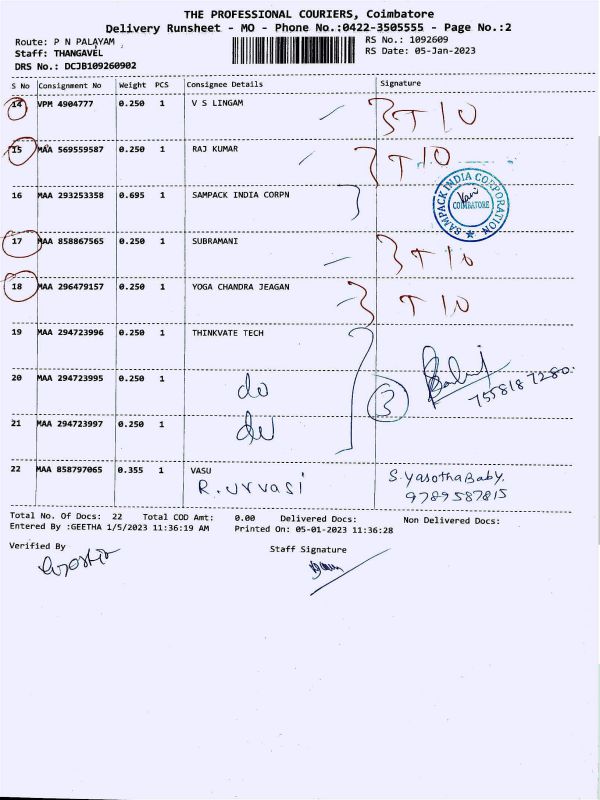 THE PROFESSIONAL COURIERS, Coimbatore
Delivery Runsheet - MO - Phone No.:0422-3505555 - Page No.:2
Route: P N PALAYAM
RS No.: 1092609
Staff: THANGAVEL
RS Date: 05-Jan-2023
DRS No.: DCJB109260902
S No Consignment No Weight PCS Consignee Details Signature
14 VPM 4904777 0.250 1 V S LINGAM T10
15 MAA 569559587 0.250 1 RAJ KUMAR T10
16 MAA 293253358 0.695 1 SAMPACK INDIA CORPN
SAMPACK INDIA CORPORATION
COIMBATORE
17 MAA 858867565 0.250 1 SUBRAMANI T10
18 MAA 296479157 0.250 1 YOGA CHANDRA JEAGAN T10
19 MAA 294723996 0.250 1 THINKVATE TECH
20 MAA 294723995 0.250 1
do 3 7558187280
21 MAA 294723997 0.250 1
do
22 MAA 858797065 0.355 1 VASU
R. urvasi S. yasothaBaby.
9789587815
Total No. Of Docs: 22 Total COD Amt: 0.00 Delivered Docs: Non Delivered Docs:
Entered By :GEETHA 1/5/2023 11:36:19 AM Printed On: 05-01-2023 11:36:28
Verified By
Staff Signature